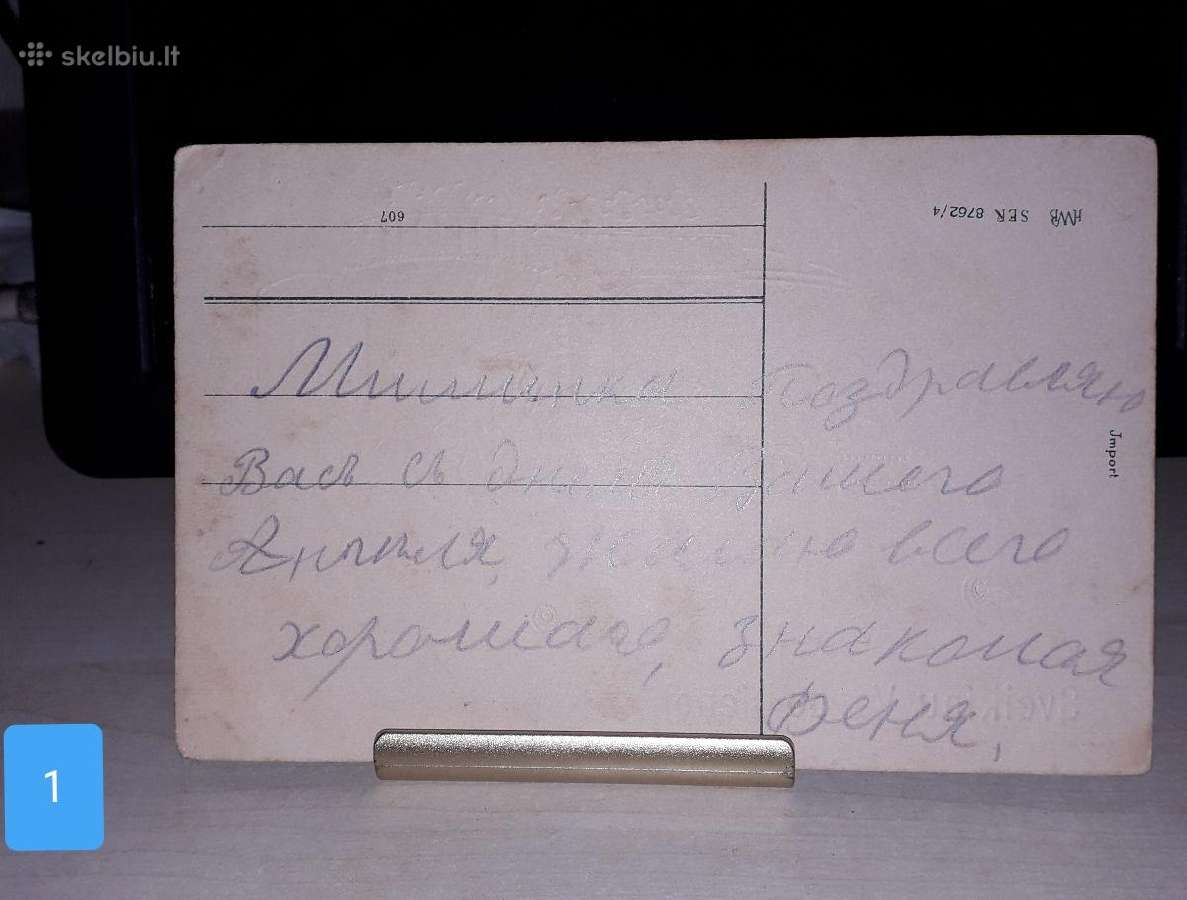 skelbiu.lt
607
HWB SER 8762/4
Import
Милинка Поздравляю
Васъ съ днемъ Вашего
Ангела, желаю всего
хорошаго, знакомая
Феня,
1